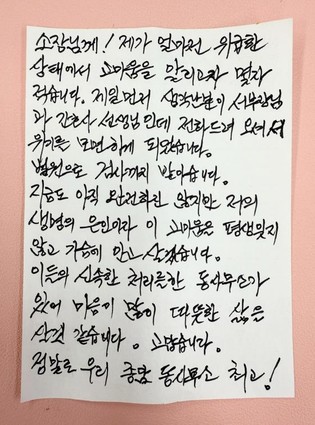 소장님께! 제가 얼마전 위급한
상태에서 고마움을 알리고자 몇자
적습니다. 제일먼저 생각난분이 서부장님
과 간호사 선생님인데 전화드려 오셔서
위기를 모면하게 되었습니다.
병원으로 검사까지 받아습니다.
지금도 아직 완전하진 않지만 저의
생명의 은인이자 이 고마움은 평생잊지
않고 가슴에 안고 살겠습니다.
이들의 신속한 처리를한 동사무소가
있어 마음이 많이 따뜻한 삶을
산것 같습니다. 고맙습니다.
정말로 우리 동사무소 최고!